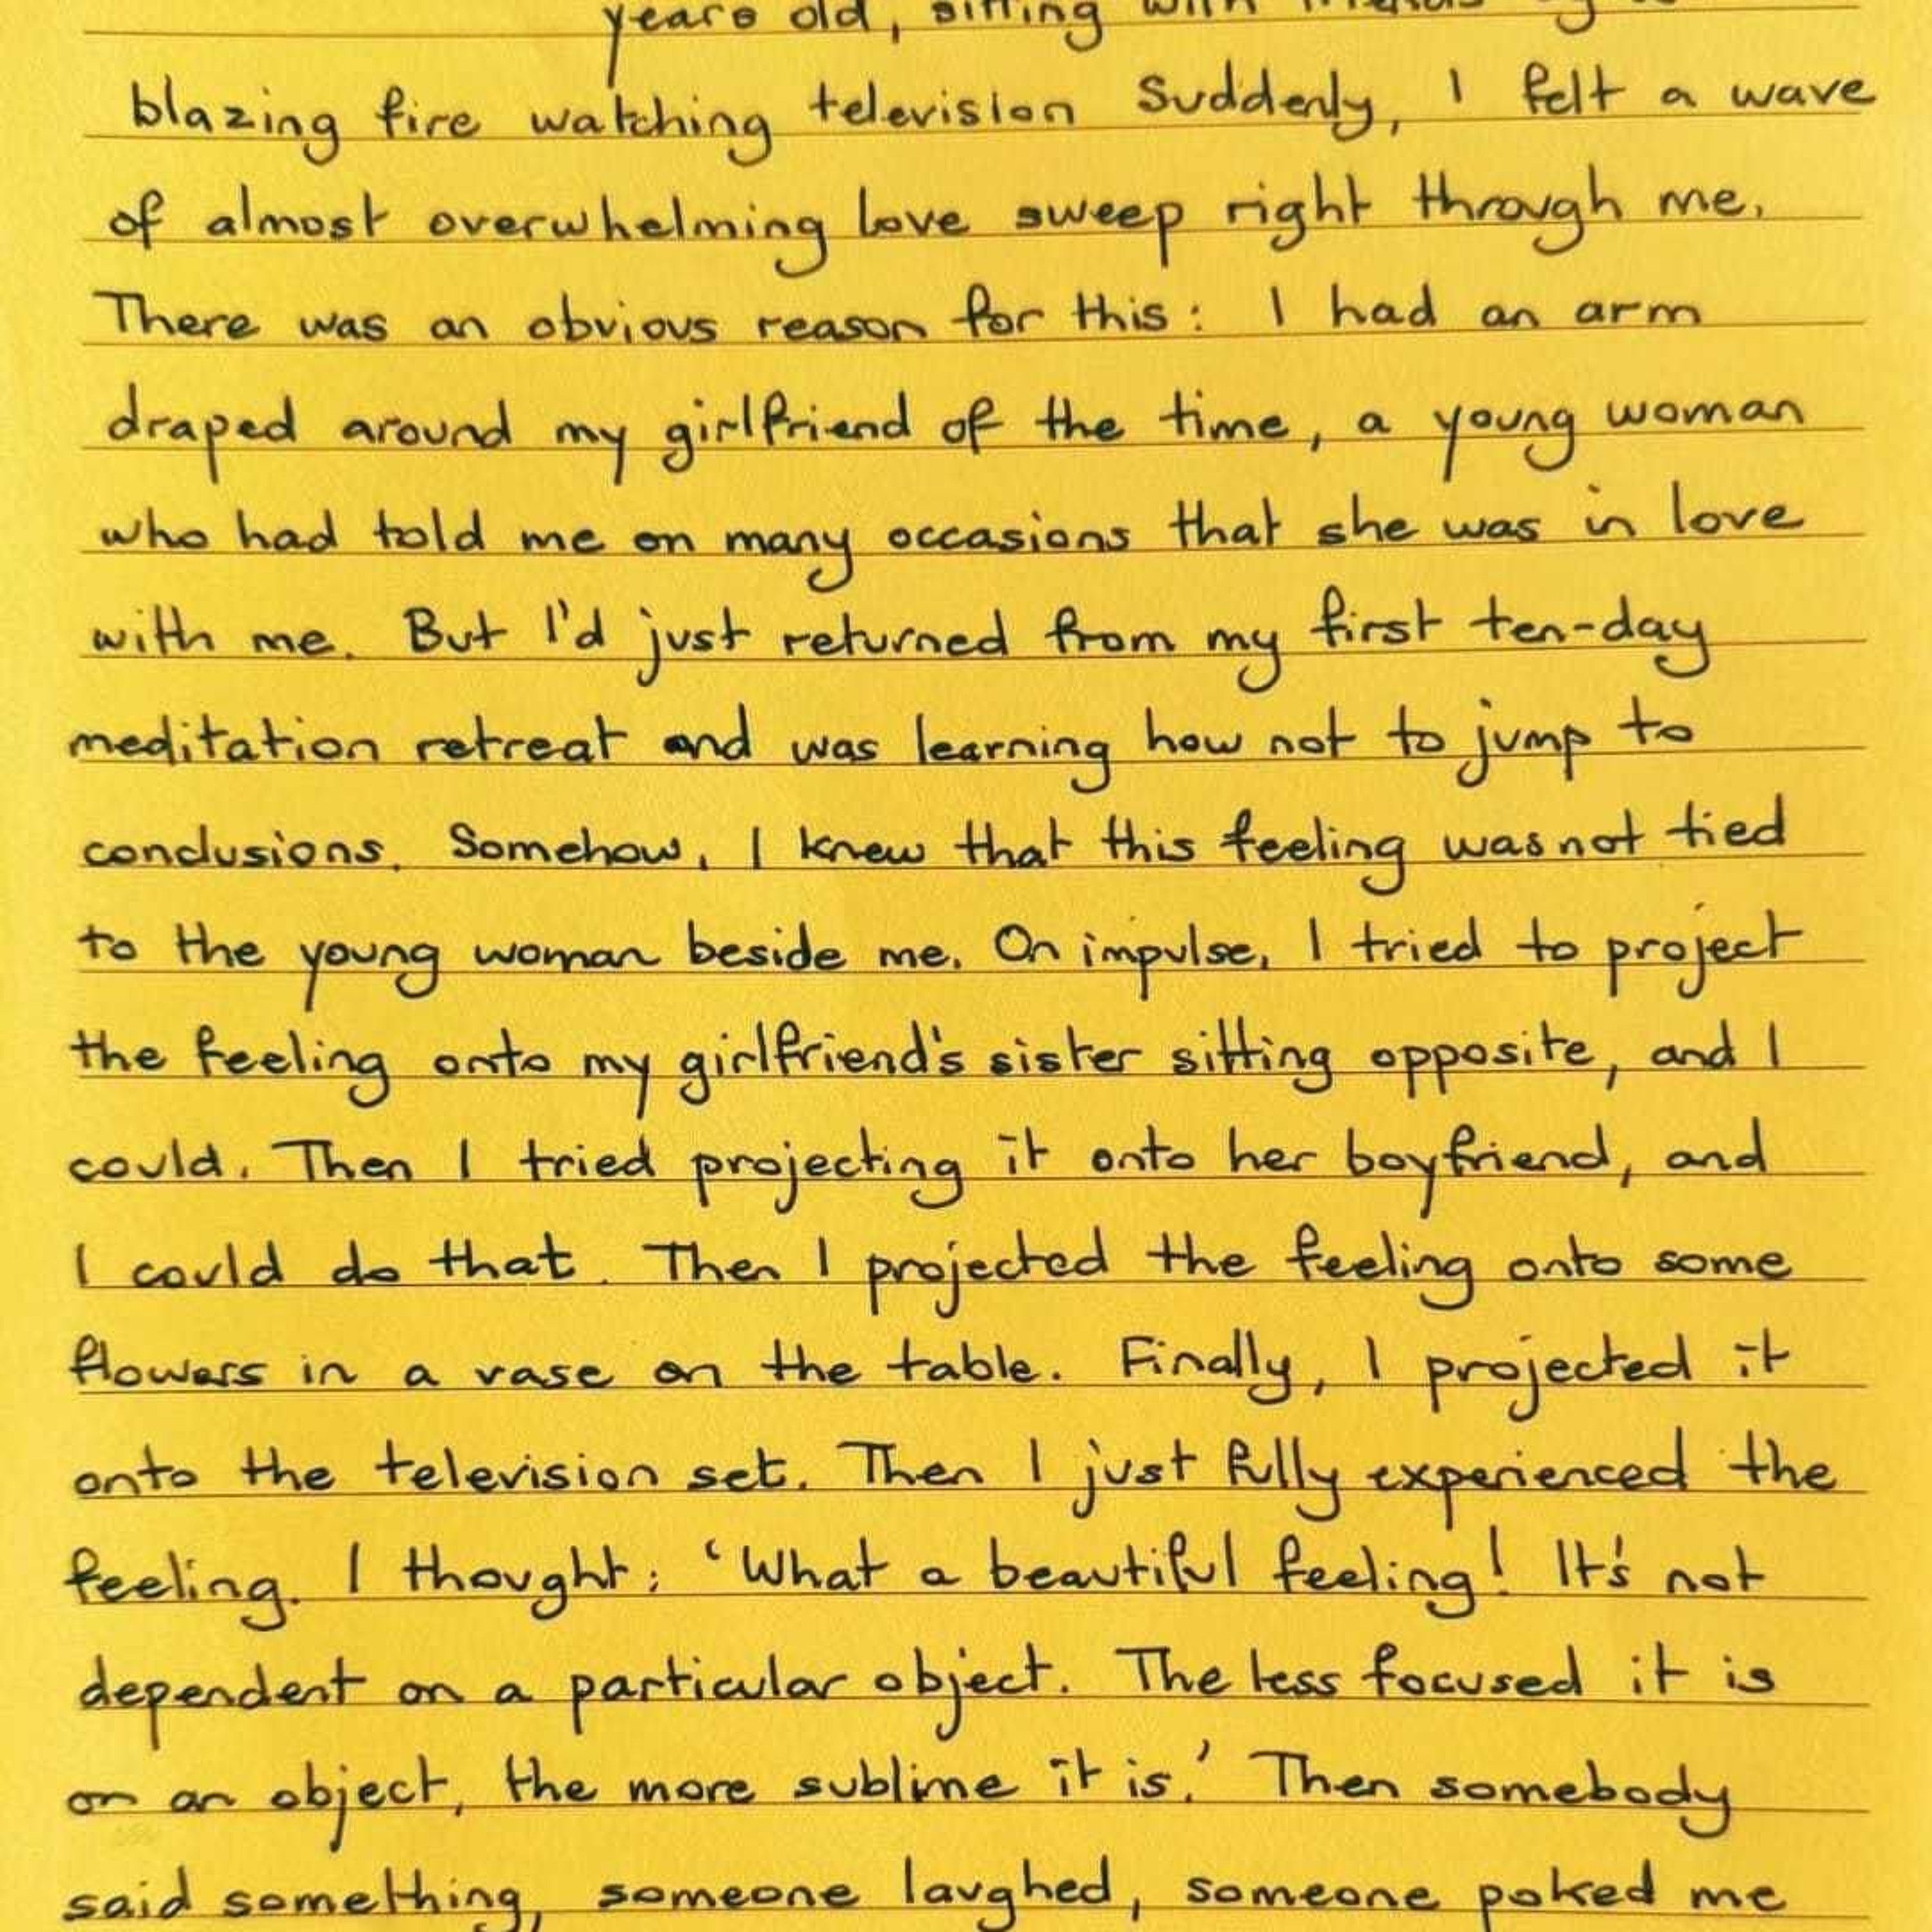 years old, sitting with friends by a
blazing fire watching television Suddenly, I felt a wave
of almost overwhelming love sweep right through me.
There was an obvious reason for this: I had an arm
draped around my girlfriend of the time, a young woman
who had told me on many occasions that she was in love
with me. But I'd just returned from my first ten-day
meditation retreat and was learning how not to jump to
conclusions. Somehow, I knew that this feeling was not tied
to the young woman beside me. On impulse, I tried to project
the feeling onto my girlfriend's sister sitting opposite, and I
could. Then I tried projecting it onto her boyfriend, and
I could do that. Then I projected the feeling onto some
flowers in a vase on the table. Finally, I projected it
onto the television set. Then I just fully experienced the
feeling. I thought: 'What a beautiful feeling! It's not
dependent on a particular object. The less focused it is
on an object, the more sublime it is.' Then somebody
said something, someone laughed, someone poked me